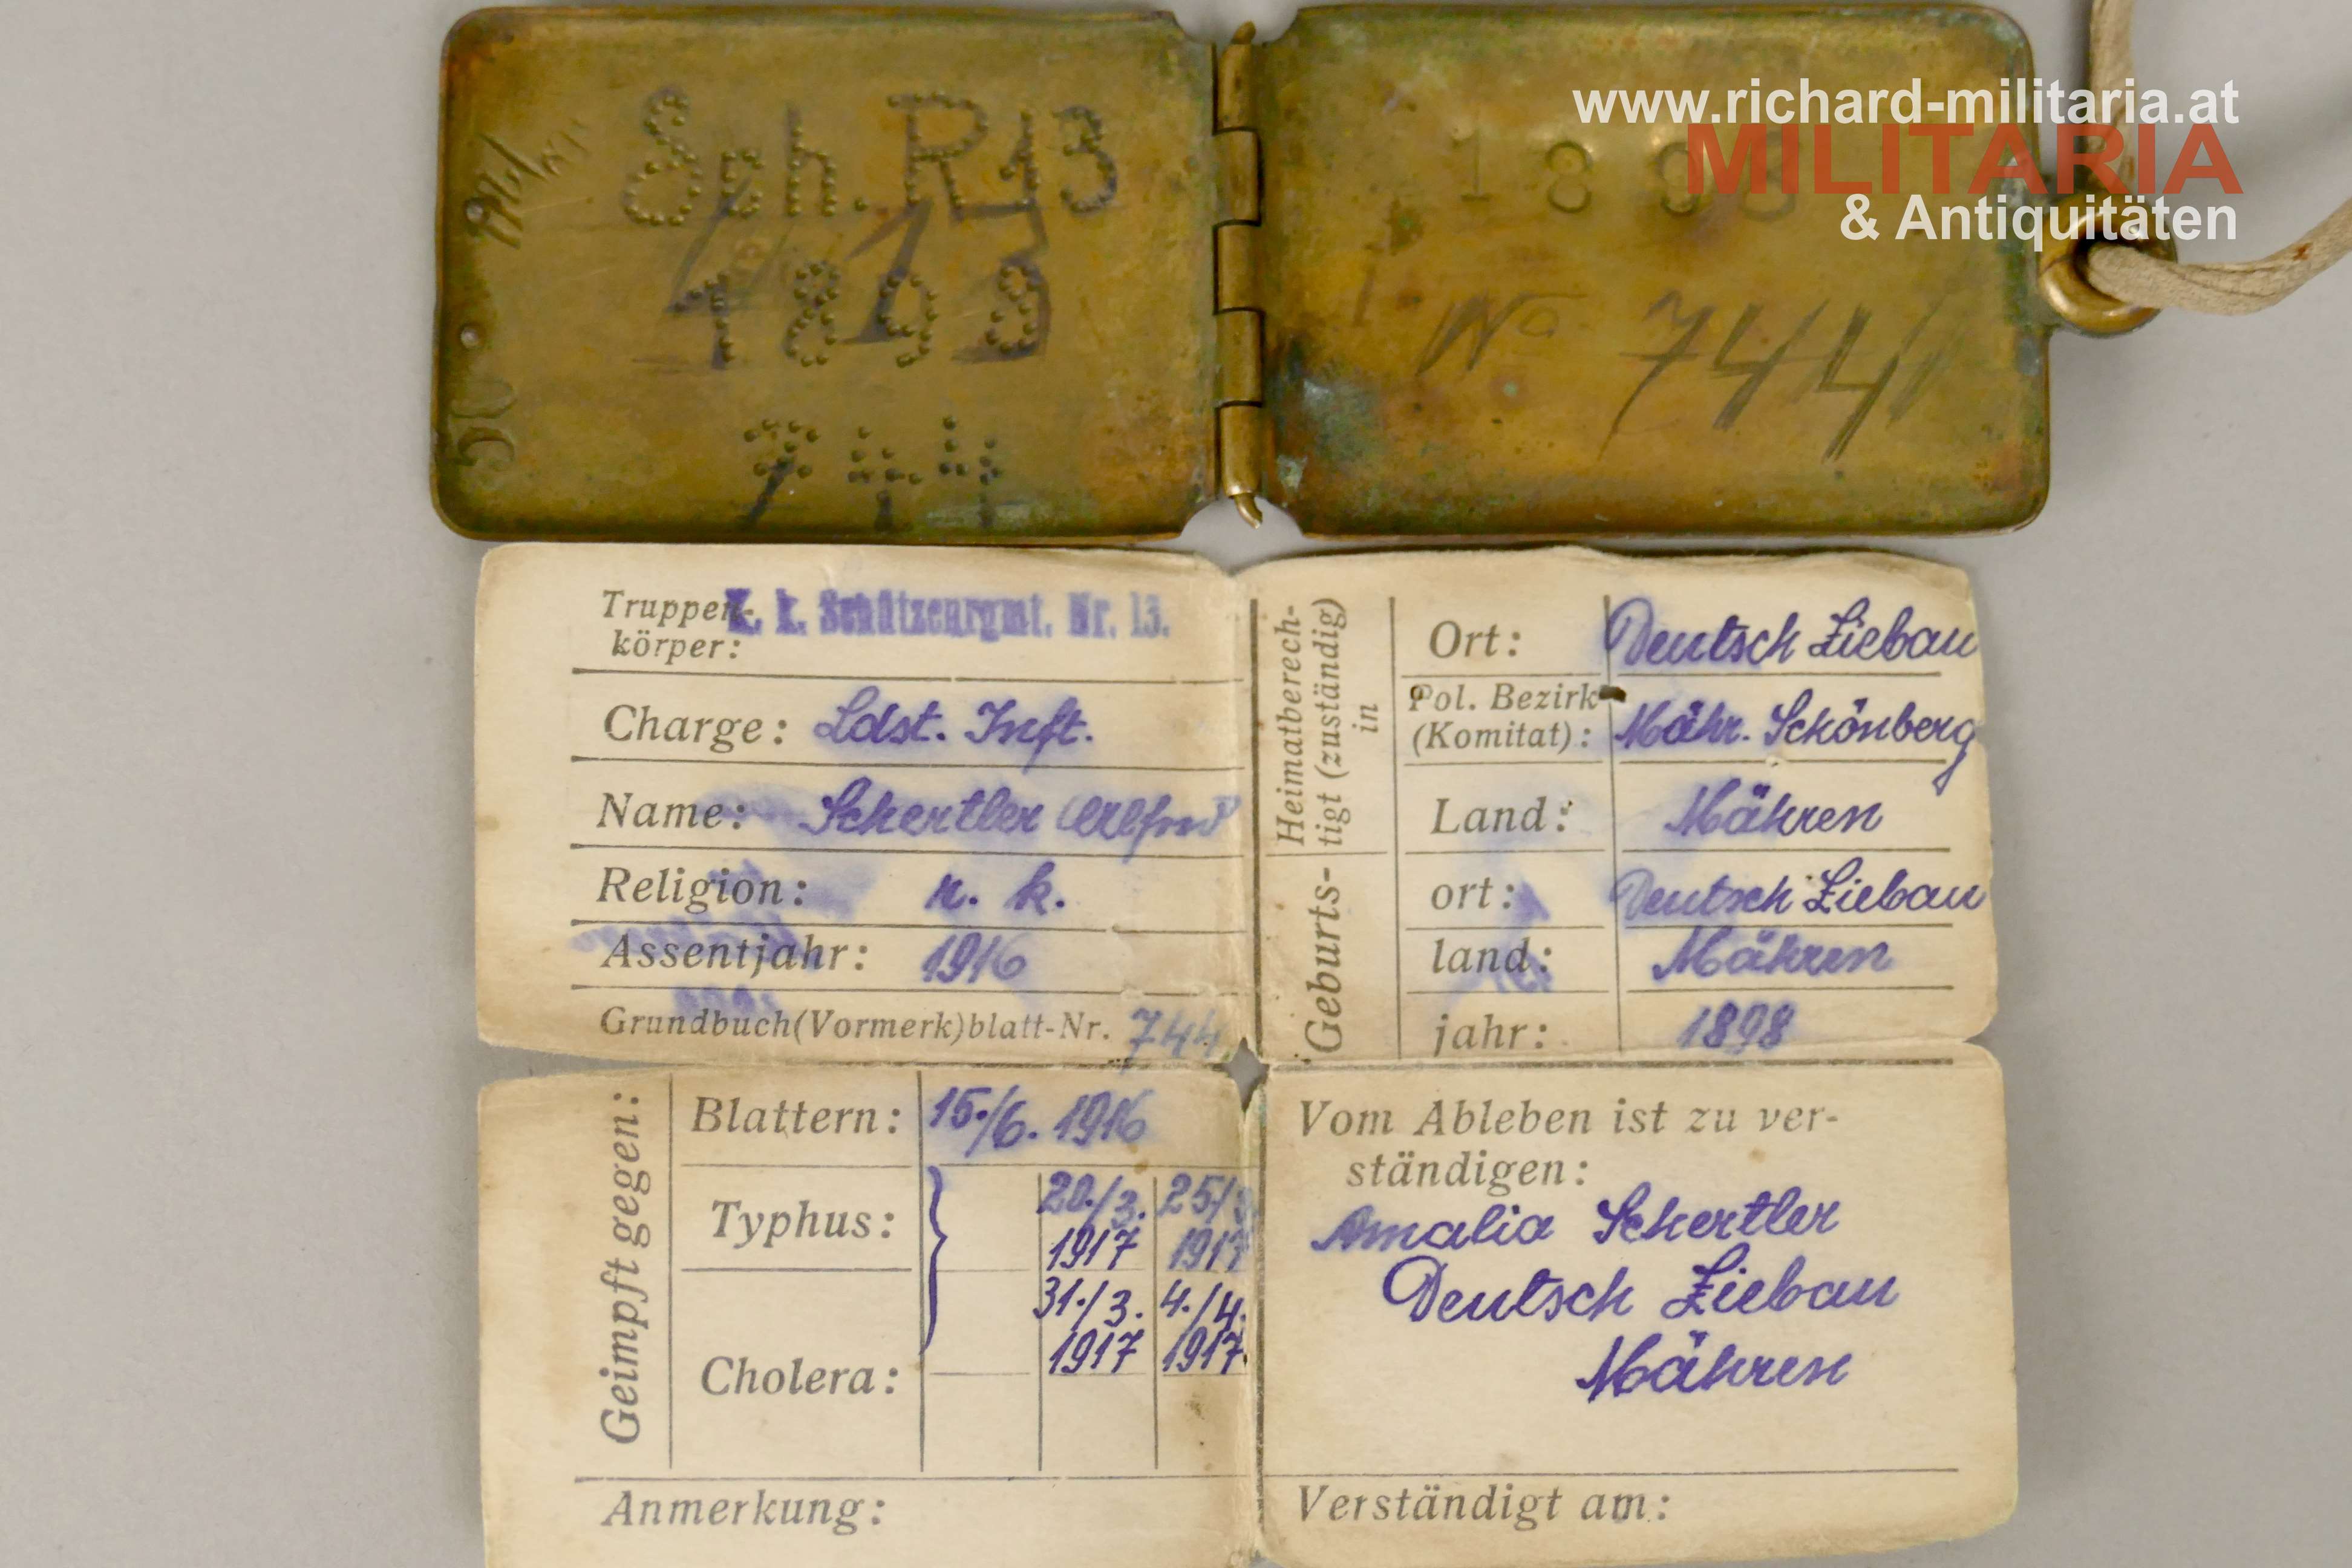 www.richard-militaria.at
MILITARIA
& Antiquitäten
Sch. R 13
1898
744
50
1898
No 744
Truppen-
körper: K. k. Schützenrgmt. Nr. 13.
Charge: Ldst. Inft.
Name: Schertler Alfred
Religion: r. k.
Assentjahr: 1916
Grundbuch(Vormerk)blatt-Nr. 744
Heimatberech-
tigt (zuständig)
in
Ort: Deutsch Liebau
Pol. Bezirk
(Komitat): Mähr. Schönberg
Land: Mähren
Geburts-
ort: Deutsch Liebau
land: Mähren
jahr: 1898
Geimpft gegen:
Blattern: 15./6. 1916
Typhus: 20./3. 1917 25/3 1917
Cholera: 31./3. 1917 4./4. 1917.
Anmerkung:
Vom Ableben ist zu ver-
ständigen:
Amalia Schertler
Deutsch Liebau
Mähren
Verständigt am: